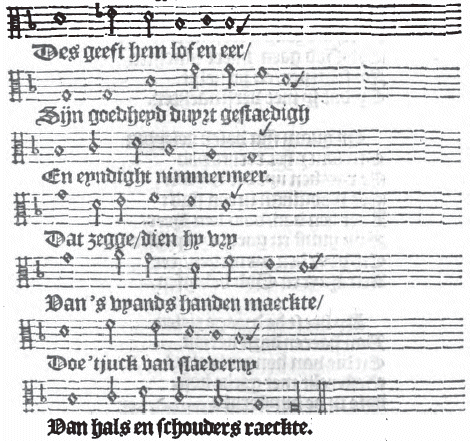 Des geeft hem lof en eer/
Sijn goedheyd duyrt gestaedigh
En eyndight nimmermeer.
Dat zegge/dien hy vry
Van 's vyands handen maeckte/
Doe 'tjuck van slaeverny
Van hals en schouders raeckte.